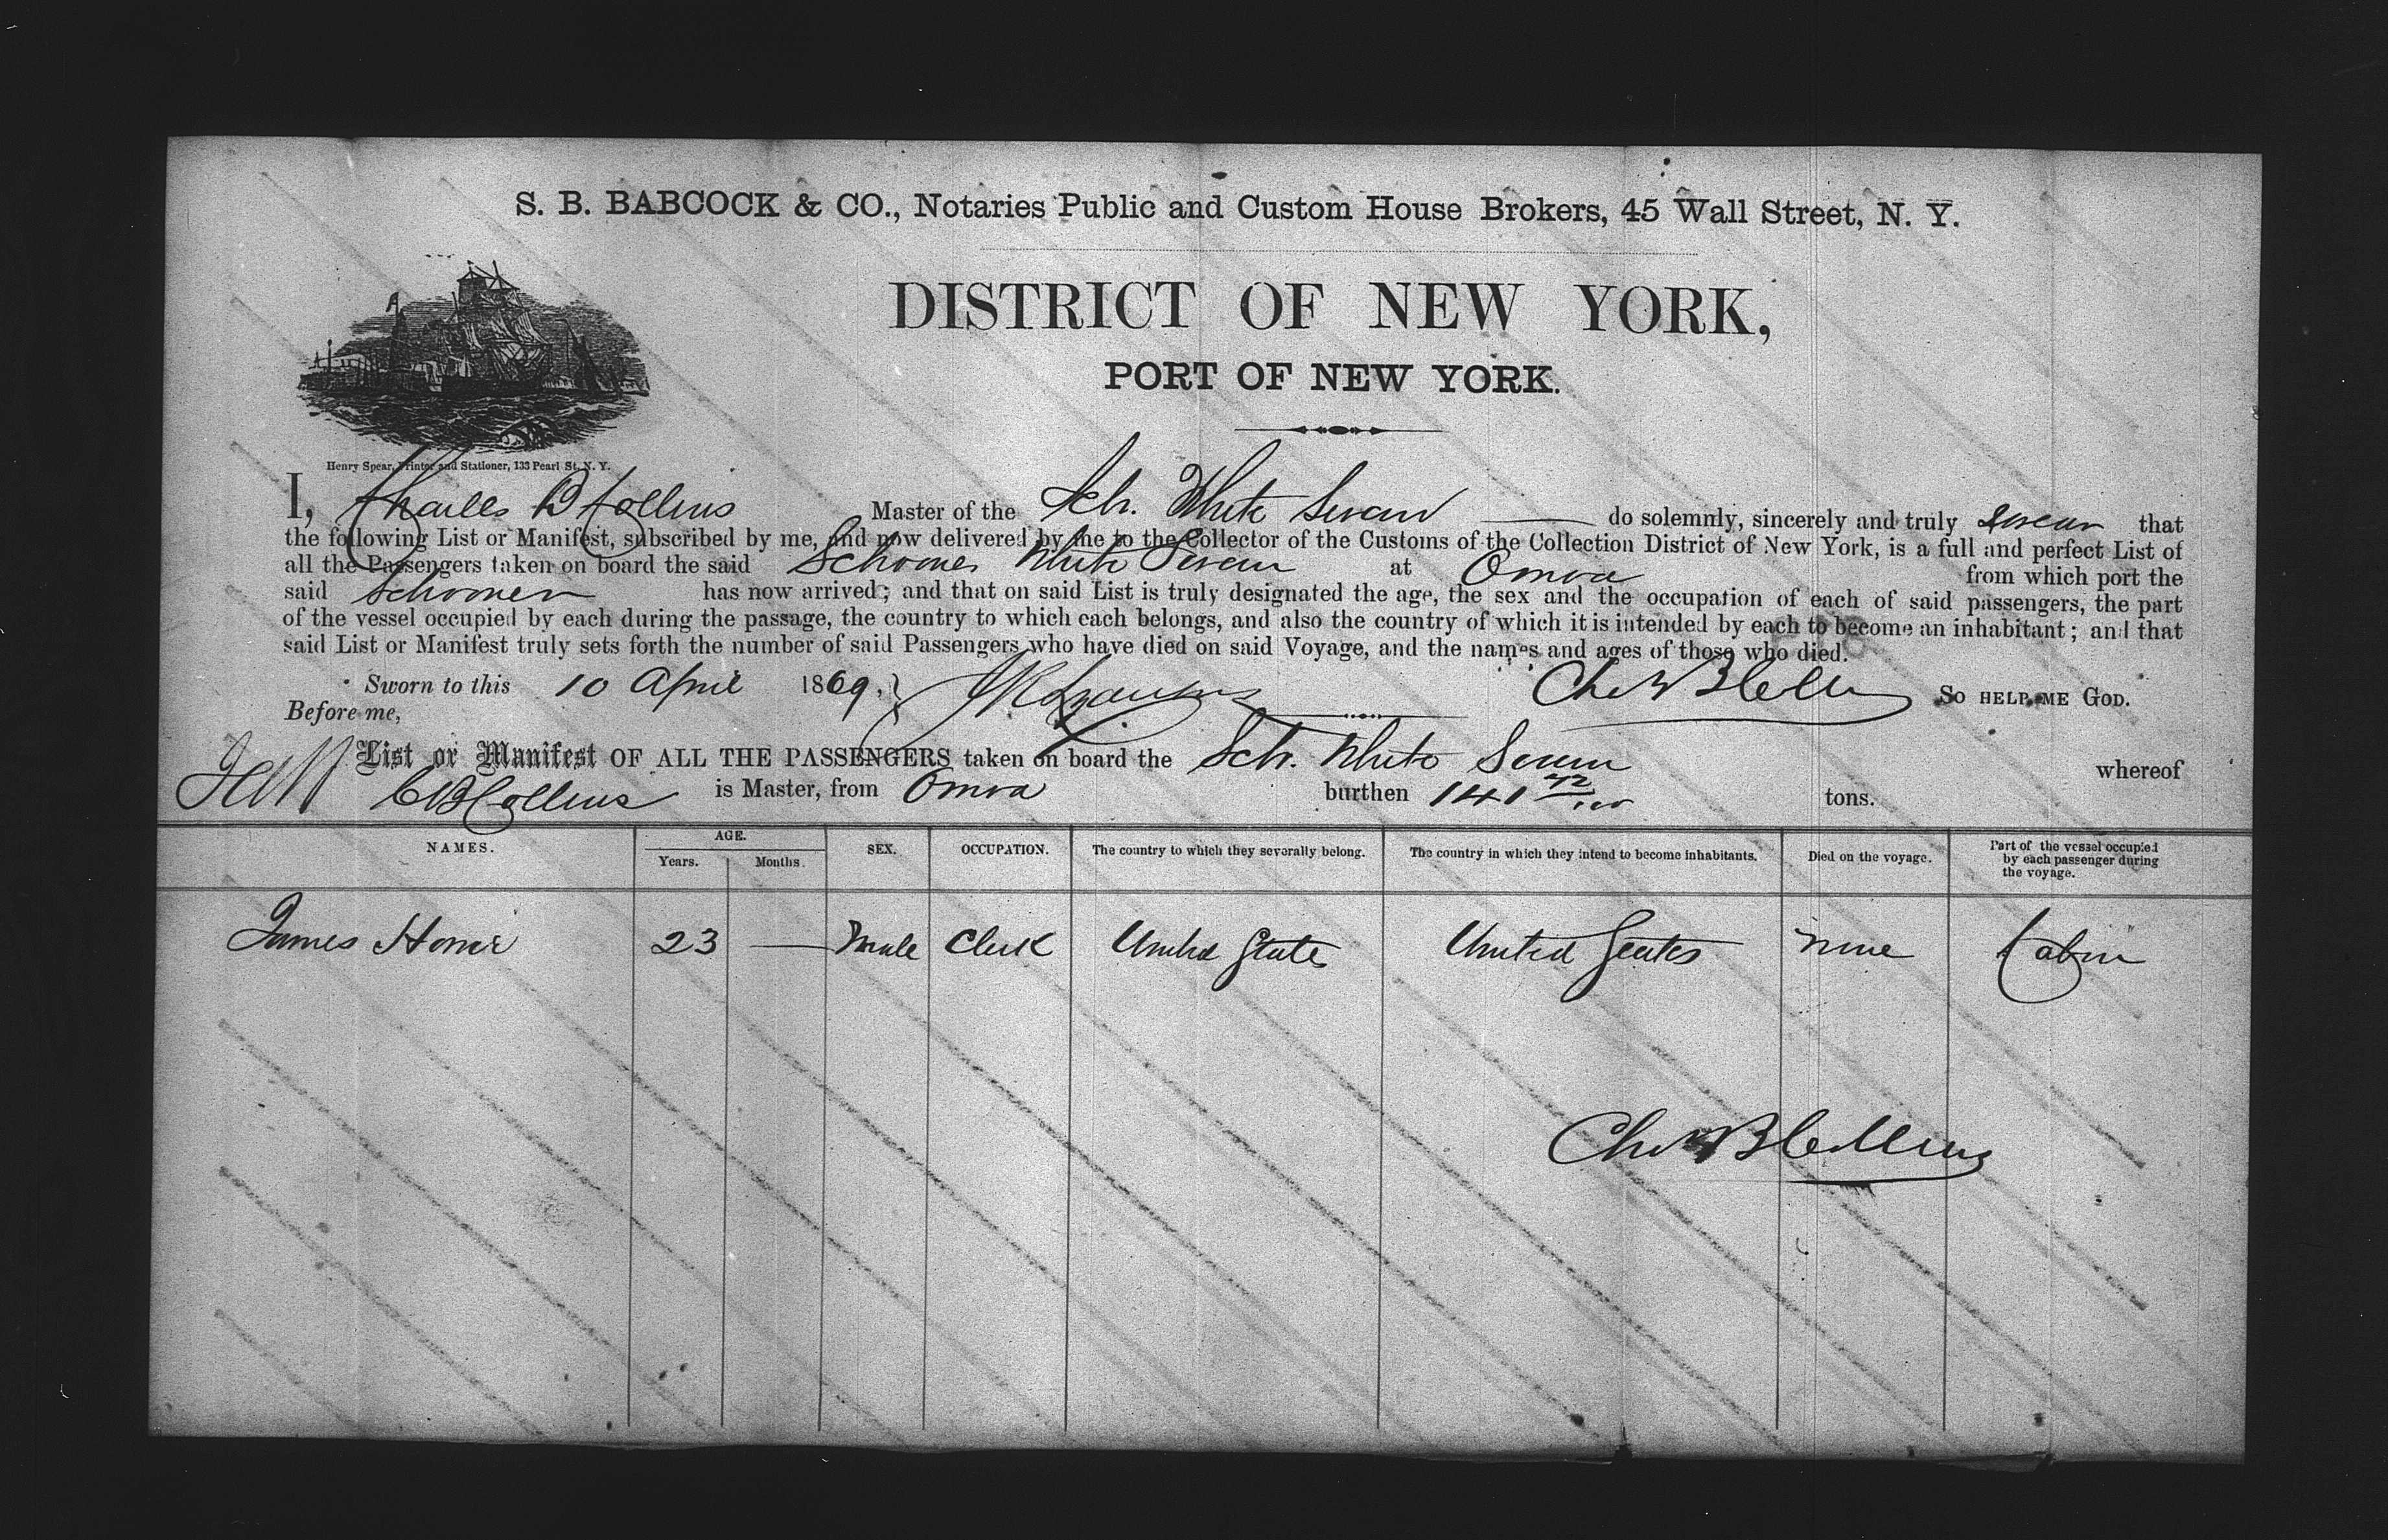 S. B. BABCOCK & CO., Notaries Public and Custom House Brokers, 45 Wall Street, N. Y.
DISTRICT OF NEW YORK,
PORT OF NEW YORK.
Henry Spear, Printer and Stationer, 133 Pearl St. N. Y.
I, Charles B Collins Master of the Sch. White Swan do solemnly, sincerely and truly swear that
the following List or Manifest, subscribed by me, and now delivered by me to the Collector of the Customs of the Collection District of New York, is a full and perfect List of
all the Passengers taken on board the said Schooner White Swan at Omoa from which port the
said Schooner has now arrived; and that on said List is truly designated the age, the sex and the occupation of each of said passengers, the part
of the vessel occupied by each during the passage, the country to which each belongs, and also the country of which it is intended by each to become an inhabitant; and that
said List or Manifest truly sets forth the number of said Passengers who have died on said Voyage, and the names and ages of those who died.
Sworn to this 10 April 1869, Chas B Collins SO HELP ME GOD.
Before me,
List or Manifest OF ALL THE PASSENGERS taken on board the Sch. White Swan whereof
C B Collins is Master, from Omoa burthen 141 72/100 tons.
NAMES. AGE. SEX. OCCUPATION. The country to which they severally belong. The country in which they intend to become inhabitants. Died on the voyage. Part of the vessel occupied by each passenger during the voyage.
Years. Months.
James 23 — Male Clerk United States United States none Cabin
Chas B Collins